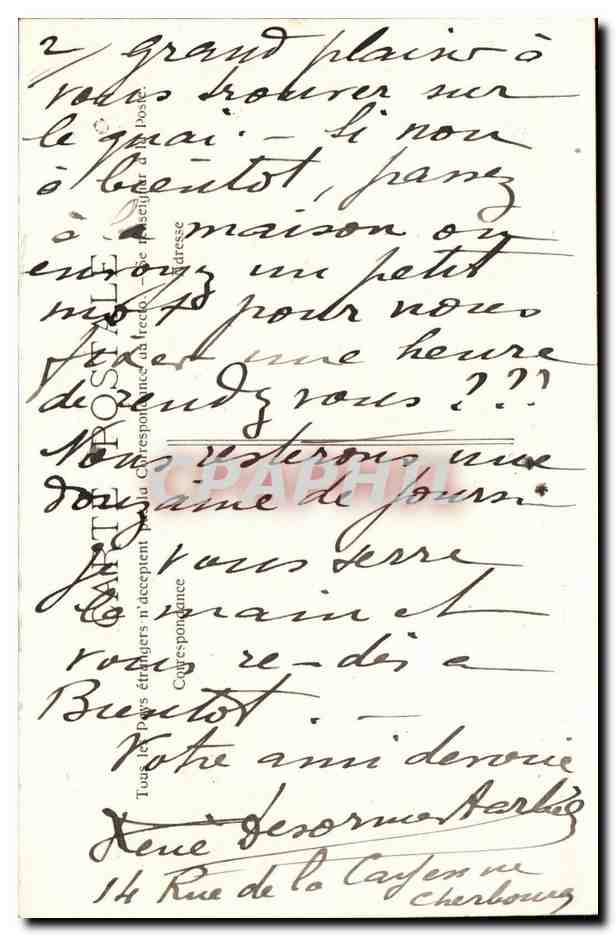 2/ grand plaisir à
vous trouver sur
le quai. — Si non
à bientot, passez
à la maison ou
envoyez un petit
mot pour nous
fixer une heure
de rendez vous ???
Nous resterons une
douzaine de jours
je vous serre
la main et
vous re-dis a
Bientot. —
Votre ami devoué
René Desormes
14 Rue de la Cayenne
Cherbourg
CARTE POSTALE
Tous les Pays étrangers n'acceptent pas la Correspondance au recto. — Se renseigner à la Poste.
Correspondance
Adresse
CPAPHIL